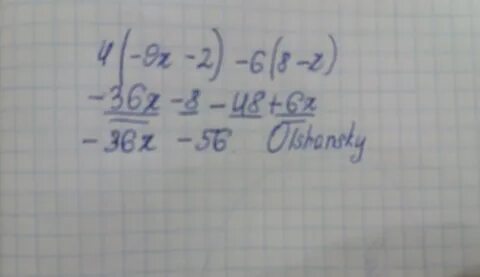 4(-9x -2) -6(8-x)
-36x -8 -48 +6x
-36x -56 Olshansky